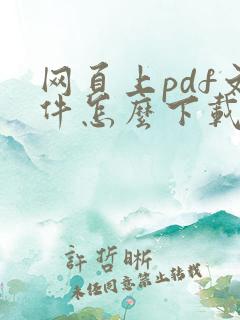 网页上pdf文
件怎麼下載
許哲晰
未经同意禁止转载